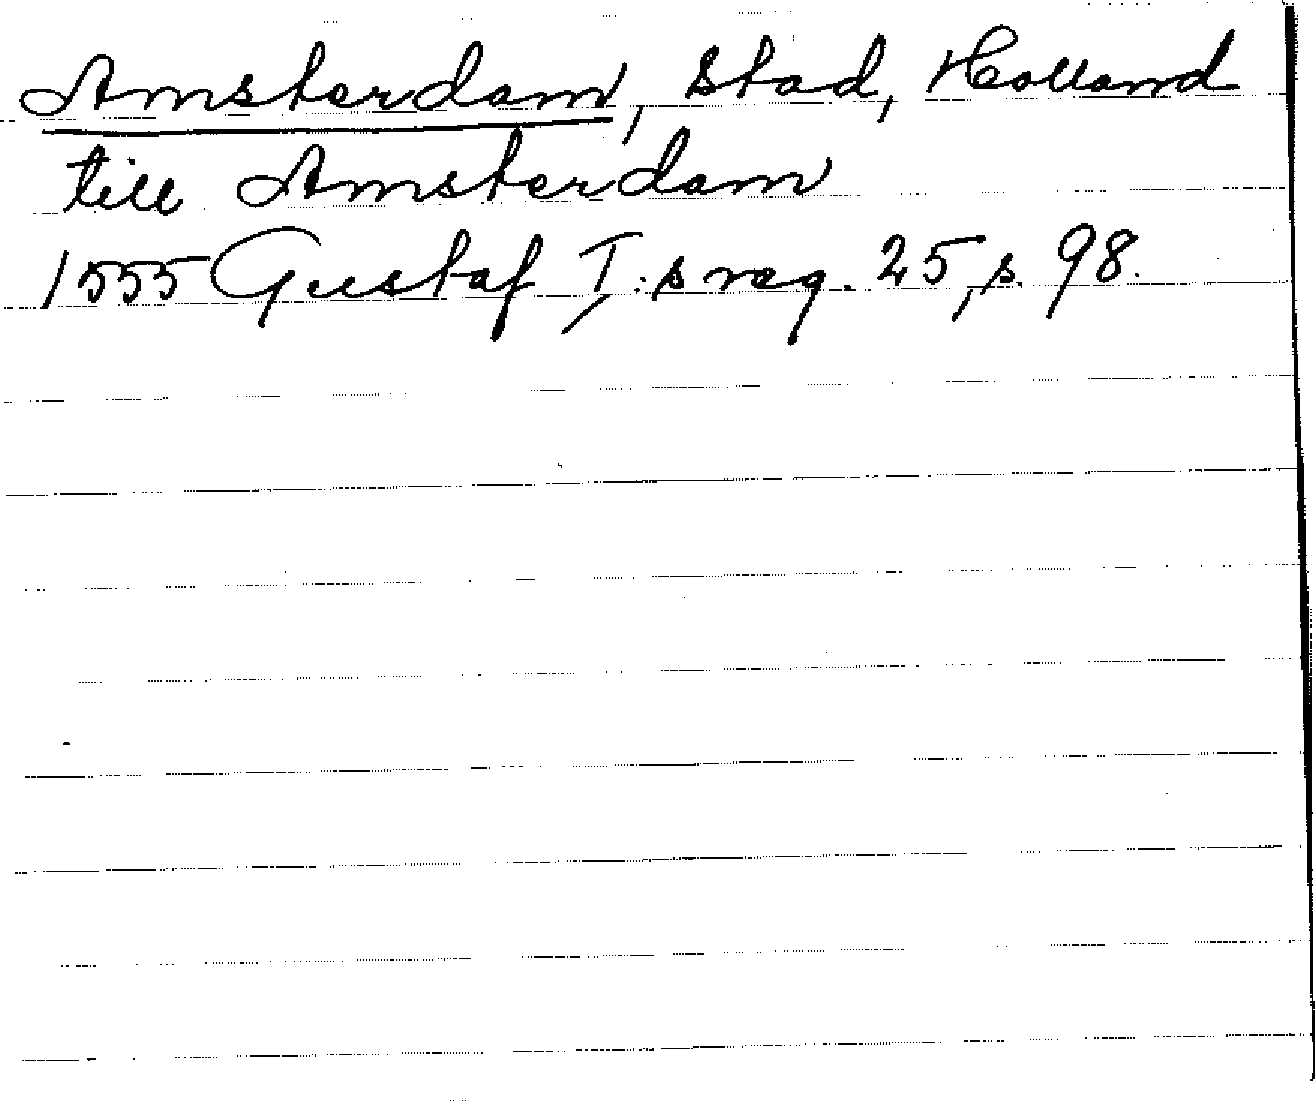 Amsterdam, stad, Holland
till Amsterdam
1555 Gustaf I:s reg. 25, s. 98.